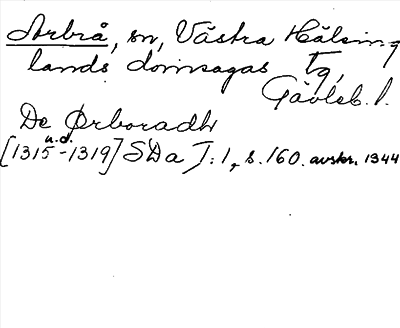 Arbrå, sn, Västra Hälsing
lands domsagas tg,
Gävleb. l.
De Ørboradh
u.d.
[1315-1319] SDa I: 1, s. 160. avskr. 1344